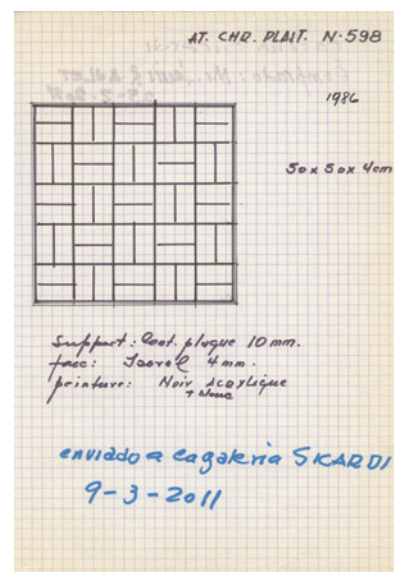 AT. CHR. PLAIT. N. 598
23-2-2011
1986
50 x 50 x 4cm
Support: Cont. plaque 10 mm.
face: Isorel 4 mm.
peinture: Noir Acrylique
+ blanc
enviado a la galeria SICARDI
9-3-2011